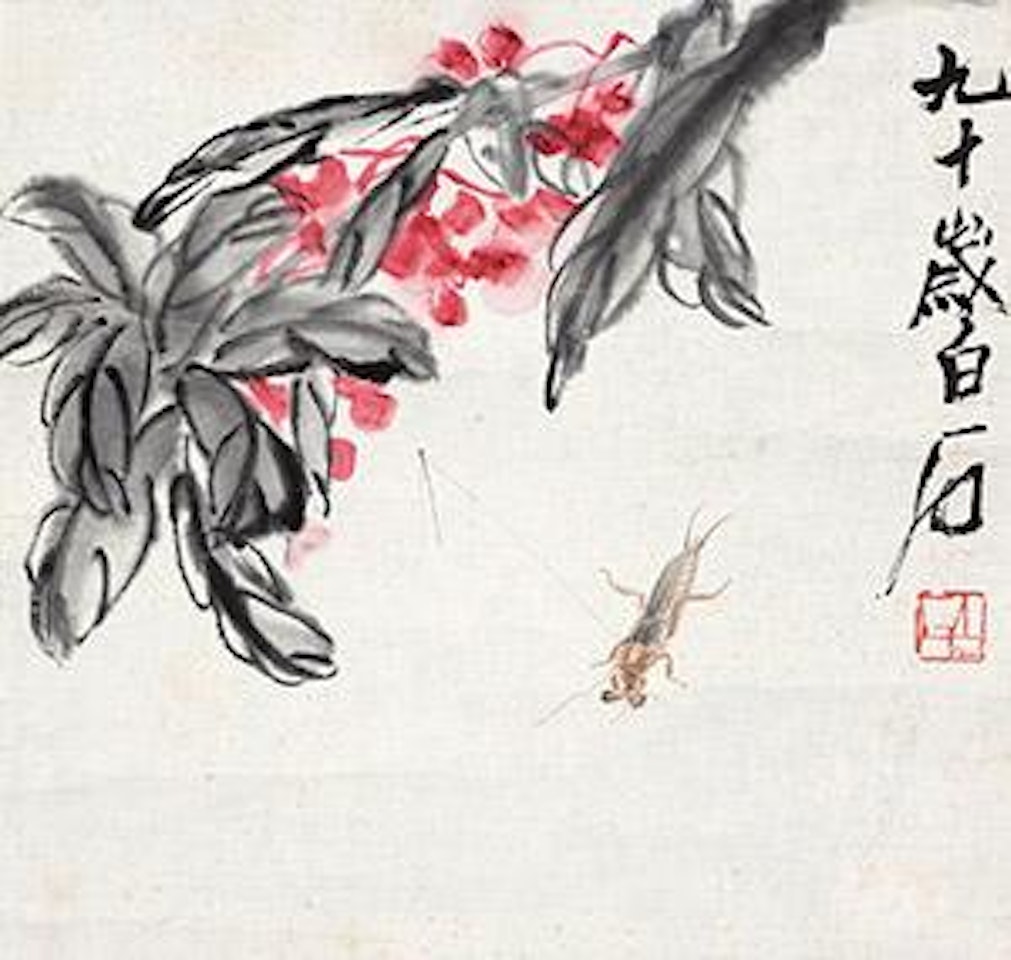 九十歲白石